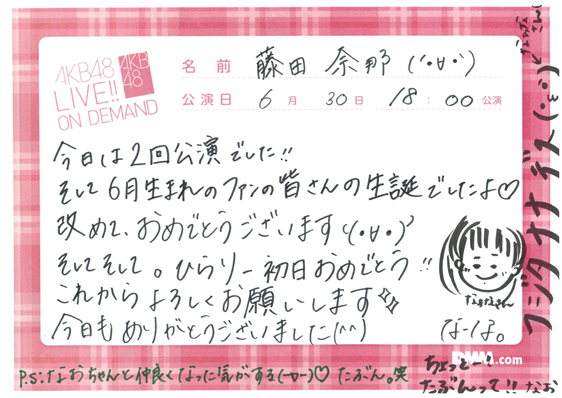 AKB48
LIVE!!
ON DEMAND
AKB
48
名前 藤田 奈那 (´•ᴗ•`)
公演日 6月 30日 18:00 公演
今日は2回公演でした!!
そして6月生まれのファンの皆さんの生誕でしたよ♡
改めて、おめでとうございますヽ(•ᴗ•)ゝ
そしてそして。ひらりー初日おめでとう!!
これからよろしくお願いします☆
今日もありがとうございました(^^)
なーな。
フジタナナデス(•ε•)
DMM.com
P.S:なおちゃんと仲良くなった気がする(-ᴗ-)♡ たぶん。笑
ちょっとー!!
たぶんって!! なお